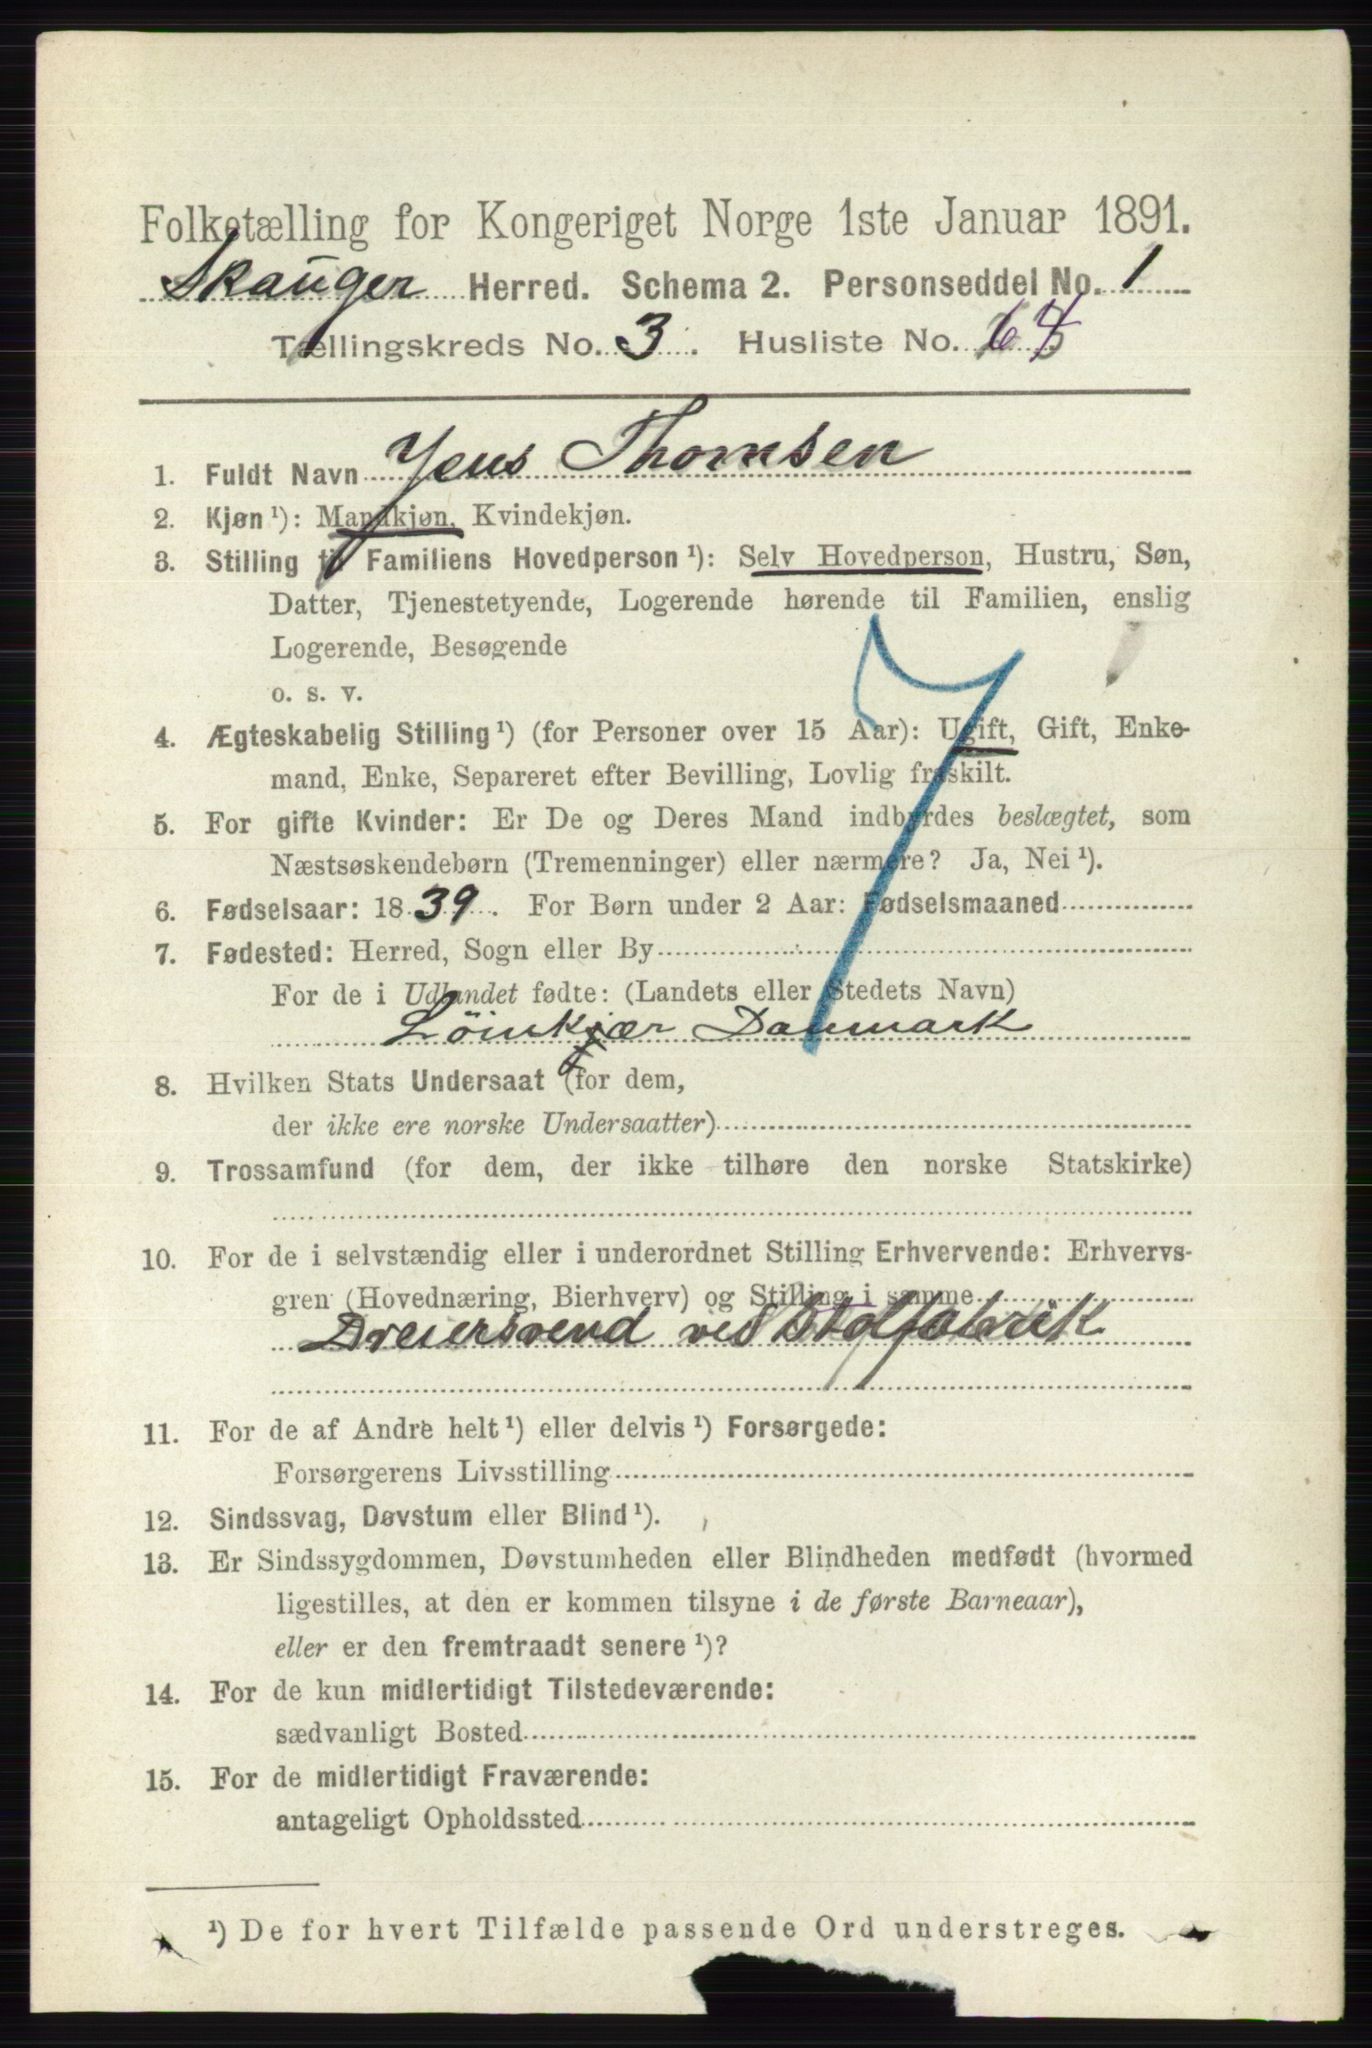 Folketælling for Kongeriget Norge 1ste Januar 1891.
Skauger Herred. Schema 2. Personseddel No. 1
Tællingskreds No. 3. Husliste No. 64
1. Fuldt Navn Jens Thomsen
2. Kjøn ¹): Mandkjøn, Kvindekjøn.
3. Stilling til Familiens Hovedperson ¹): Selv Hovedperson, Hustru, Søn,
Datter, Tjenestetyende, Logerende hørende til Familien, enslig
Logerende, Besøgende
o. s. v.
7
4. Ægteskabelig Stilling ¹) (for Personer over 15 Aar): Ugift, Gift, Enke-
mand, Enke, Separeret efter Bevilling, Lovlig fraskilt.
5. For gifte Kvinder: Er De og Deres Mand indbyrdes beslægtet, som
Næstsøskendebørn (Tremenninger) eller nærmere? Ja, Nei ¹).
6. Fødselsaar: 1839. For Børn under 2 Aar: Fødselsmaaned
7. Fødested: Herred, Sogn eller By
For de i Udlandet fødte: (Landets eller Stedets Navn)
Löinkjær Danmark
8. Hvilken Stats Undersaat (for dem,
der ikke ere norske Undersaatter)
9. Trossamfund (for dem, der ikke tilhøre den norske Statskirke)
10. For de i selvstændig eller i underordnet Stilling Erhvervende: Erhvervs-
gren (Hovednæring, Bierhverv) og Stilling i samme
Dreiersvend ved Stolfabrik
11. For de af Andre helt ¹) eller delvis ¹) Forsørgede:
Forsørgerens Livsstilling
12. Sindssvag, Døvstum eller Blind ¹).
13. Er Sindssygdommen, Døvstumheden eller Blindheden medfødt (hvormed
ligestilles, at den er kommen tilsyne i de første Barneaar),
eller er den fremtraadt senere ¹)?
14. For de kun midlertidigt Tilstedeværende:
sædvanligt Bosted
15. For de midlertidigt Fraværende:
antageligt Opholdssted
¹) De for hvert Tilfælde passende Ord understreges.